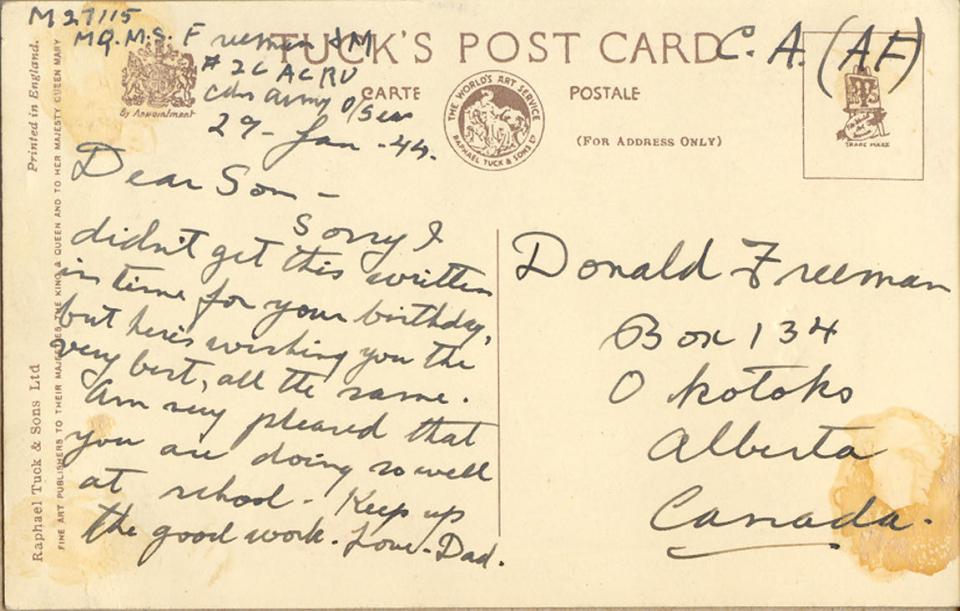 M27115
M.Q.M.S. Freeman J M
# 2C ACRU
Cdn Army O/Seas
29 - Jan - 44.
C. A. (AF)
TUCK'S POST CARD
CARTE POSTALE
(FOR ADDRESS ONLY)
By Appointment
THE WORLD'S ART SERVICE
RAPHAEL TUCK & SONS LTD
TRADE MARK
Dear Son -
Sorry I
didn't get this written
in time for your birthday,
but here's wishing you the
very best, all the same.
Am very pleased that
you are doing so well
at school - Keep up
the good work. Love - Dad.
Donald Freeman
Box 134
Okotoks
Alberta
Canada.
Printed in England.
Raphael Tuck & Sons Ltd
FINE ART PUBLISHERS TO THEIR MAJESTIES THE KING & QUEEN AND TO HER MAJESTY QUEEN MARY